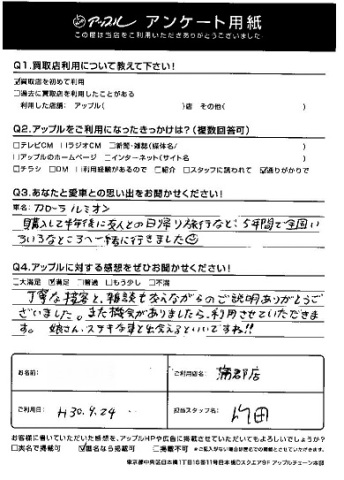 アップル アンケート用紙
この度は当店をご利用いただきありがとうございました。
Q1.買取店利用について教えて下さい!
☑買取店を初めて利用
□過去に買取店を利用したことがある
利用した店舗: アップル( )店 その他( )
Q2.アップルをご利用になったきっかけは?(複数回答可)
□テレビCM □ラジオCM □新聞・雑誌(媒体名/ )
□アップルのホームページ □インターネット(サイト名 )
□チラシ □DM □利用経験があるので □紹介 □スタッフに誘われて ☑通りがかりで
Q3.あなたと愛車との思い出をお聞かせください!
車名: カローラルミオン
購入して半年後に友人との日帰り旅行など、5年間で全国い
ろいろなところへ一緒に行きました☺
Q4.アップルに対する感想をぜひお聞かせください!
□大満足 ☑満足 □普通 □もう少し □不満
丁寧な接客と、雑談も交えながらのご説明ありがとうご
ざいました。また機会がありましたら、利用させていただきま
す。 娘さん、ステキな車と出会えるといいですね!!
お名前:
ご利用店名: 蒲郡店
ご利用日: H30.4.24
担当スタッフ名: 竹田
お客様に書いていただいた感想を、アップルHPや広告に掲載させていただいてもよろしいでしょうか?
□実名で掲載可 ☑匿名なら掲載可 □掲載不可 ※ご記入がない場合は匿名での掲載とさせていただきます。
東京都中央区日本橋1丁目16番11号日本橋DスクエアBF アップルチェーン本部